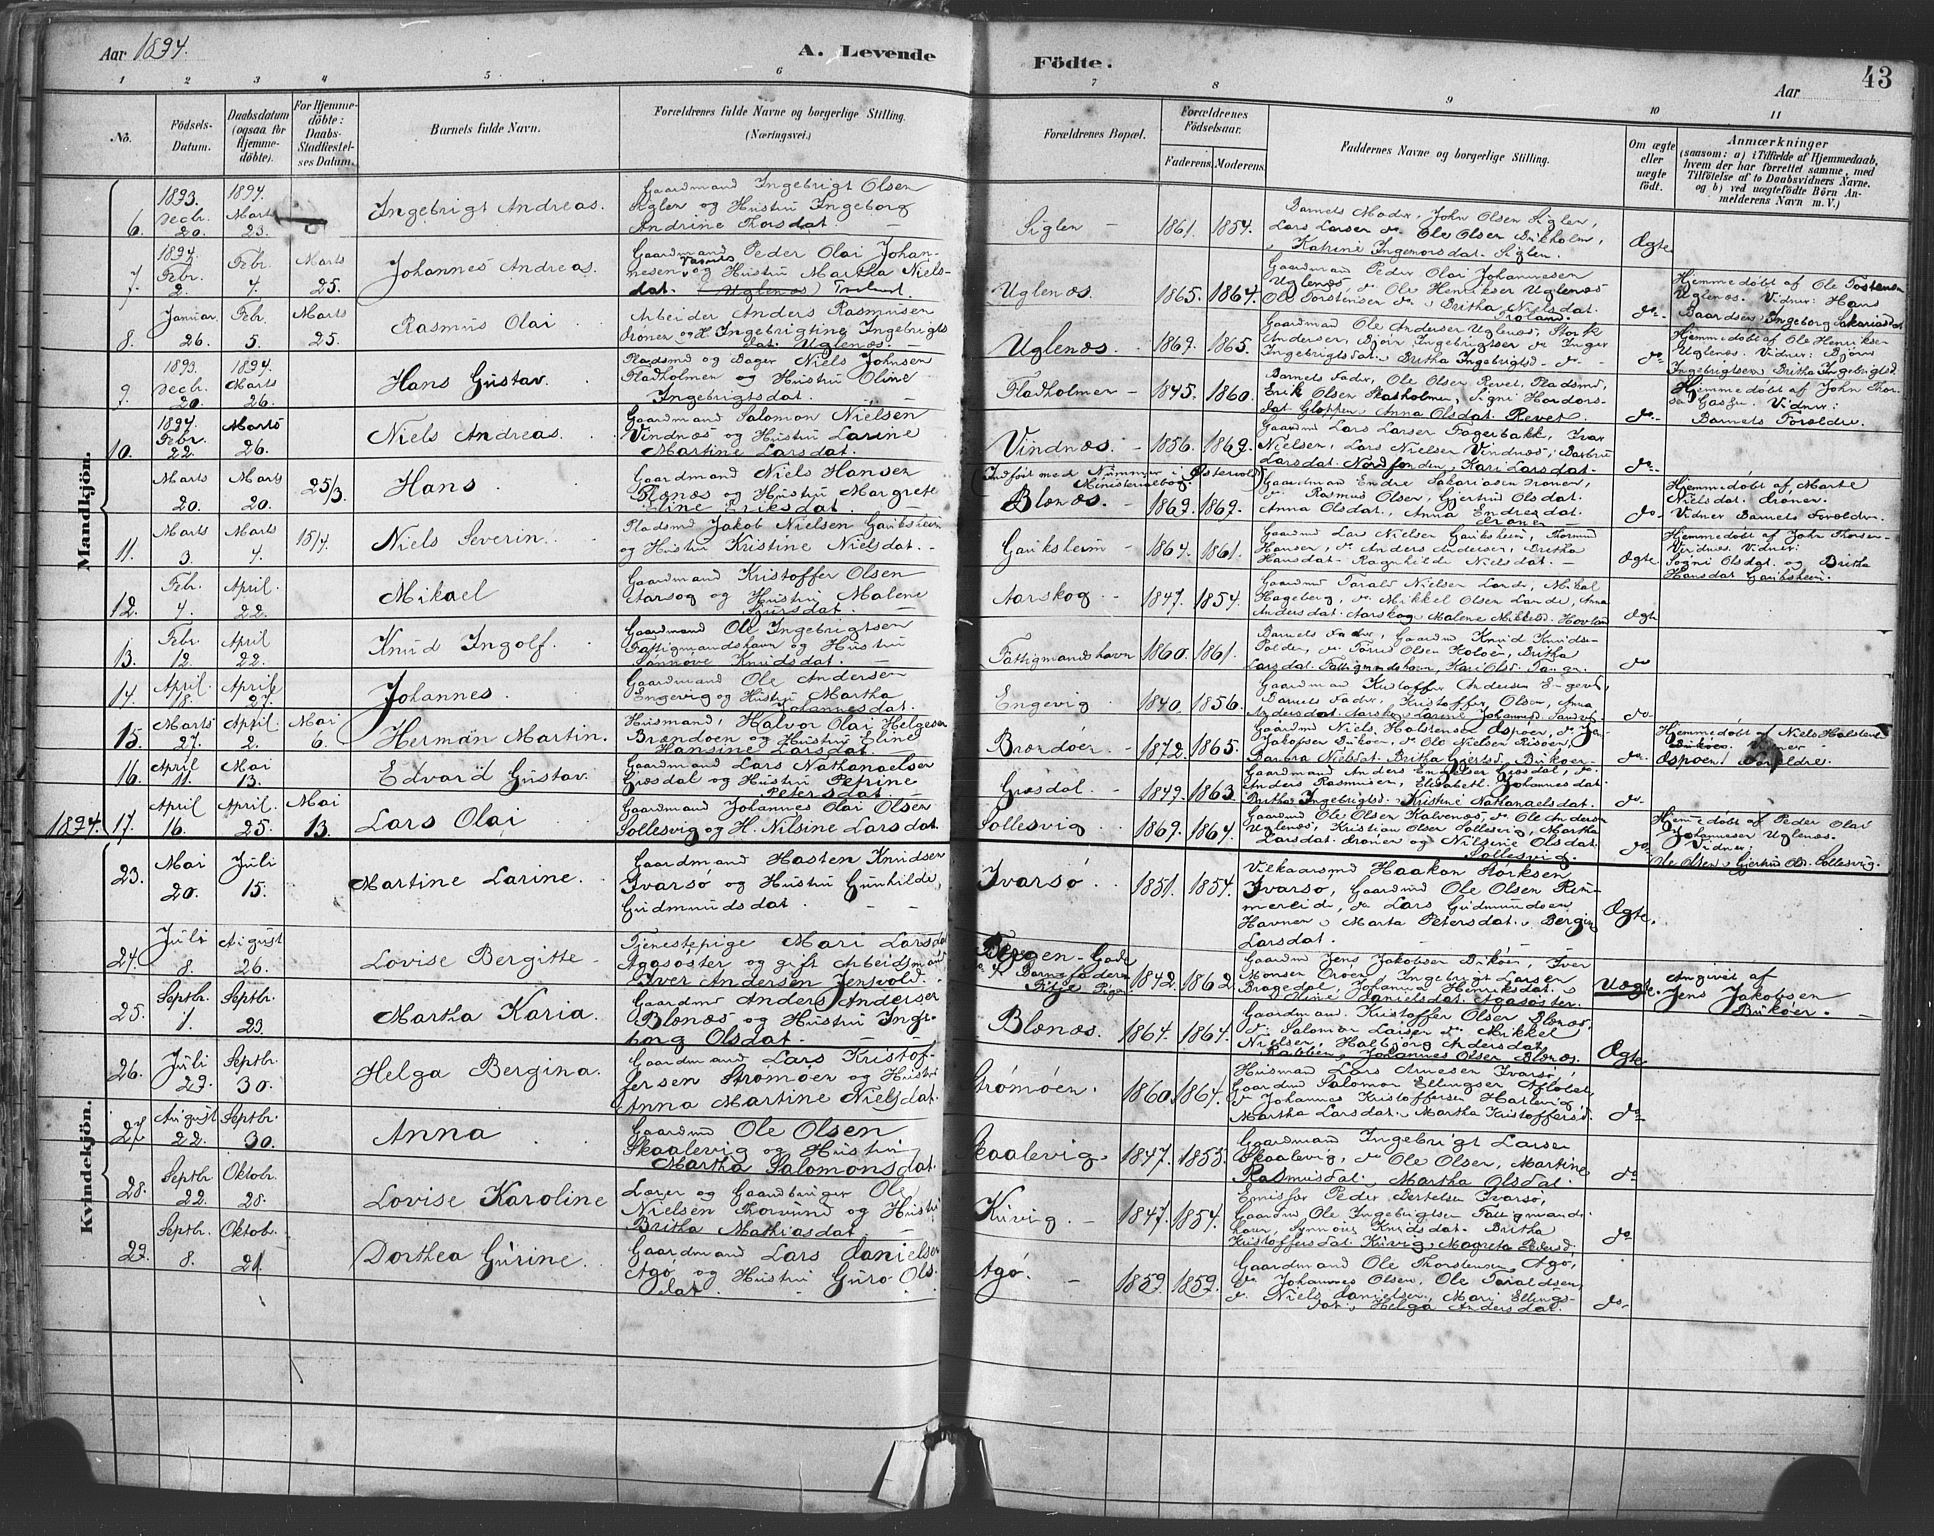 Aar 1894.
A. Levende
Födte.
Aar
43
1 2 3 4 5 6 7 8 9 10 11
No.
Födsels-Datum.
Daabsdatum (ogsaa for Hjemmedöbte).
For Hjemmedöbte: Daabs-Stadfæstelses Datum.
Barnets fulde Navn.
Forældrenes fulde Navne og borgerlige Stilling.
(Næringsvei.)
Forældrenes Bopæl.
Forældrenes Födselsaar.
Faderens. Moderens.
Faddernes Navne og borgerlige Stilling.
Om ægte eller uægte födt.
Anmærkninger
(saasom: a) i Tilfælde af Hjemmedaab, hvem der har forrettet samme, med Tilföielse af to Daabsvidners Navne. og b) ved uægtefödte Börn Anmelderens Navn m. V.)
Mandkjön.
6. 1893. Decbr. 20. 1894. Marts 23. Ingebrigt Andreas.
Gaardmand Ingebrigt Olsen
Siglen og Hustru Ingeborg
Andrine Thorsdat
Siglen 1861. 1854.
Barnets Moder, John Olsen Siglen,
Lars Larsen do Ole Olsen Bukholm,
Katrine Ingemorsdat. Siglen.
Ægte
7. 1894. Febr. 2. Febr. 4. Marts 25. Johannes Andreas.
Gaardmand Peder Olai Johannesen
og Hustru Martha Nielsdat
Uglenæs. 1865. 1864.
Gaardmand Peder Olai Johannesen
Uglenæs, do Ole Henriksen Uglenæs
Ole Torstensen do Britha Nielsdat.
do
Hjemmedöbt af Ole Tostensen
Uglenæs. Vidner: Hans
Baardsen, Ingeborg Sakariasdat
8. Januar 26. Febr. 5. Marts 25. Rasmus Olai
Arbeider Anders Rasmusen
Dröner og H. Ingebrigtine Ingebrigts
dat. Uglenæs.
Uglenæs. 1869. 1865.
Gaardmand Ole Andersen Uglenæs, Stork
Andersen, Björn Ingebrigtsen do Inger
Ingebrigtsdat. Britha Ingebrigtsd.
do
Hjemmedöbt af Ole Henriksen
Uglenæs. Vidner: Björn
Ingebrigtsen Britha Ingebrigtsd
9. 1893. Decbr. 20. 1894. Marts 26. Hans Gustav.
Pladsmd og Bager Niels Johnsen
Fladholmen og Hustru Oline
Ingebrigtsdat.
Fladholmen 1845. 1860.
Barnets Fader, Ole Olsen Revet, Pladsmd,
Erik Olsen Skatholmen, Signi Haldorsdat
Anna Olsdat. Revet.
do
Hjemmedöbt af John Thorsen
Vidner:
Barnets Foraldre.
10. 1894. Febr. 22. Marts 26. Niels Andreas.
Gaardmand Salomon Nielsen
Vindnæs og Hustru Larine
Martine Larsdat.
Vindnæs. 1856. 1869.
Gaardmd Lars Larsen Fagerbakk, Ivar
Nielsen, Lars Nielsen Vindnæs, Barbru
Larsdat. Nordfonden, Kari Larsdat.
do
Marts 20. Marts 20. 25/3. Hans.
Gaardmand Niels Hansen
Blænæs og Hustru Margrete
Eline Eriksdat.
Indfört med Nummer i Östervold
Ministerialbog
Blænæs. 1869. 1869.
Gaardmand Endre Sakariasen Dröner,
do Rasmus Olsen, Gjertrud Olsdat.
Anna Olsdat. Anna Endresdat
Dröner
do
Hjemmedöbt af Marte
Nielsdat. Dröner.
Vidner Barnets Foraldre.
11. Marts 3. Marts 4. 15/4. Niels Severin.
Pladsmd Jakob Nielsen Gauksheim
og Hustru Kristine Nielsdat.
Gauksheim 1864. 1861.
Gaardmd Lars Nielsen Gauksheim, Thormod
Hansen, do Anders Andersen, Britha
Hansdat. Ragnhilde Nielsdat.
Ægte
Hjemmedöbt af John Thorsen
Vindnæs. Vidner:
Sogni Olsdat. og Britha
Hansdat Gauksheim.
12. Febr. 4. April. 22. Mikael
Gaardmand Kristoffer Olsen
Aarskog og Hustru Malene
Sjursdat.
Aarskog 1847. 1854.
Gaardmd Torald Nielsen Lande, Mikal
Hageberg, do Mikkel Olsen Lande, Anna
Andersdat. Aarskog Malene Mikkelsd.
Ægte
13. Febr. 12. April 22. Knud Ingolf.
Gaardmand Ole Ingebrigtsen
Fattigmandshavn og Hustru
Sönnove Knudsdat.
Fattigmandshavn 1860. 1861.
Barnets Fader, Gaardm Knud Knudsen
Britha
Larsdat. Fattigmandshavn, Kari Olsd.
do
14. April 18. April 27. Johannes.
Gaardmand Ole Andersen
Engevig og Hustru Martha
Johannesdat.
Engevig 1840. 1856.
Gaardman Kristoffer Andersen Engevi,
Barnets Fader, Kristoffer Olsen, Anna
Andersdat. Aarskog Larine Johannesd.
do
15. Marts 27. April 2. Mai 6. Herman Martin.
Husmand, Halvor Olai Helgesen
Brændöen og Hustru Eline
Hansine Larsdat
Brændöen. 1872. 1865.
Gaardmd Niels Halstensen Ospöen,
Jakobsen Bukøen, do Ole Nielsen Risöen,
Barbra Nielsdat. Britha Gjertsd. Bukøen
do
Hjemmedöbt af Niels Halstensen
Vidner
Ospöen. Foraldre.
16. April 11. Mai 13. Edvard Gustav.
Gaardmand Lars Nathanaelsen
Giæsdal og Hustru Pepine
Petersdat
Giæsdal. 1849. 1863.
Gaardmand Anders Engelsen Giæsdal, do
Anders Rasmusen, Elisabeth Johannesdat.
Britha Ingebrigtsd. Kristine Nathanaelsdat.
do
1894. 17. April 16. April. 25. Mai 13. Lars Olai
Gaardmand Johannes Olai Olsen
Sollesvig og H. Nilsine Larsdat.
Sollesvig 1869. 1864.
Gaardmd Ole Olsen Kalvenæs, do Ole Andersen
Uglenæs, Kristian Olsen Sollesvig, Martha
Larsdat. Dröner og Nilsine Olsdat
Sollesvig.
do
Hjemmedöbt af Peder Olai
Johannesen Uglenæs.
Vidner:
Ole Olsen, Gjertrud Ols. Sollesvig.
Kvindekjön.
23. Mai 20. Juli 15. Martine Larine.
Gaardmand Hasten Knudsen
Ivarsö og Hustru Gunhilde
Gudmundsdat.
Ivarsö. 1851. 1854.
Vilkaarsmd Haakon Storksen
Ivarsö, Gaardmd Ole Olsen Rimmereide,
do Lars Gudmundsen
Havnen, Marta Petersdat. Bergin
Larsdat.
Ægte.
24. Juli 8. August 26. Lovise Bergitte
Tjenestepige Mari Larsdat
Agasöster og gift Arbeidsmand
Iver Andersen Jensvold.
Bergen
1842. 1862
Gaardman Jens Jakobsen Bukøen, Iver
Monsen Dröen, Ingebrigt Larsen
Bragedal, Johanna Henriksdat.
Oline Danielsdat. Agasöster.
Uægte.
Angivet af
Jens Jakobsen
Bukøen.
25. Septbr. 1. Septbr. 23. Martha Karia.
Gaardmd Anders Andersen
Blænæs og Hustru Ingeborg
Olsdat.
Blænæs 1864. 1864.
Gaardman. Kristoffer Olsen Blænæs,
do Salomon Larsen do Mikkel
Nielsen, Halbjörg Andersdat.
Rabben, Johannes Olsen Blænæs.
Ægte
26. Juli 29. Septbr. 30. Helga Bergina.
Gaardmand Lars Kristoffersen
Strömöen og Hustru
Anna Martine Nielsdat.
Strömöen. 1860. 1864.
Husman Lars Arnesen Ivarsö,
Gaardmd Salomon Ellingsen
do Johannes Kristoffersen Harlevig,
Martha Larsdat. Martha Kristoffersd.
do
27. August 22. Septbr. 30. Anna
Gaardmd Ole Olsen
Skaalevig og Hustru
Martha Salomonsdat.
Skaalevig. 1847. 1855.
Gaardmand Ingebrigt Larsen
Skaalevig, do Ole Olsen, Martine
Rasmusdat. Martha Olsdat.
do
28. Septbr 22. Oktobr. 28. Lovise Karoline
Lærer og Gaardbruger Ole
Nielsen Thorvund og Hustru
Britha Mathiasdat
Kuvig. 1847. 1854.
Emissær Peder Bertelsen Ivarsö,
Gaardmd Ole Ingebrigtsen Fattigmandshavn,
Synnöve Knudsdat. Britha
Kristoffersdat. Kuvig, Magreta Pedersd.
do
29. Septbr. 8. Oktobr. 21. Dorthea Gurine.
Gaardmand Lars Danielsen
Agö og Hustru Guro Olsdat.
Agö. 1859. 1859.
Gaardmand Ole Thorstensen Agö,
do Johannes Olsen, Ole Taraldsen,
do Niels Danielsen, Mari Ellingsdat.
Helga Andersdat.
do